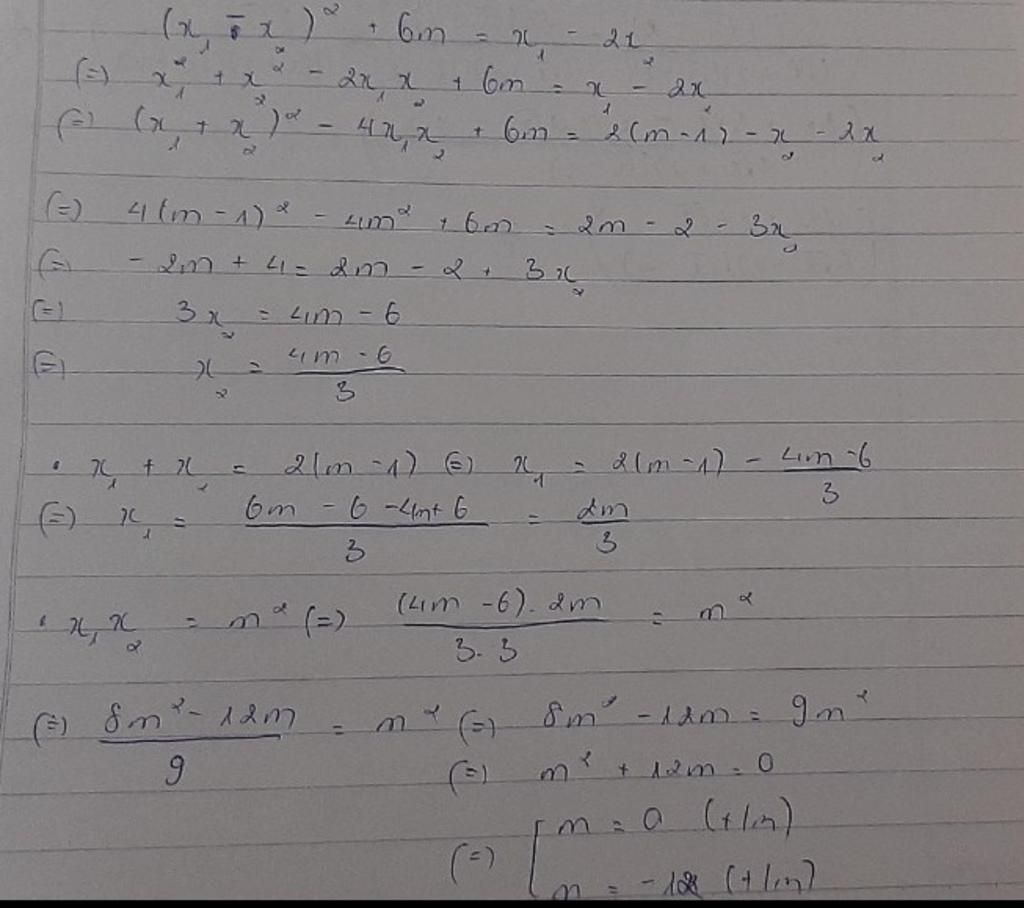 (x₁ - x₂)² + 6m = x₁ - 2x₂
(=) x₁² + x₂² - 2x₁x₂ + 6m = x₁ - 2x₂
(=) (x₁ + x₂)² - 4x₁x₂ + 6m = 2(m-1) - x₂ - 2x₂
(=) 4(m-1)² - 4m² + 6m = 2m - 2 - 3x₂
(=) -2m + 4 = 2m - 2 + 3x₂
(=) 3x₂ = 4m - 6
(=) x₂ = (4m - 6)/3
• x₁ + x₂ = 2(m-1) (=) x₁ = 2(m-1) - (4m-6)/3
(=) x₁ = (6m - 6 - 4m + 6)/3 = 2m/3
• x₁x₂ = m² (=) ((4m - 6). 2m)/(3. 3) = m²
(=) (8m² - 12m)/9 = m² (=) 8m² - 12m = 9m²
(=) m² + 12m = 0
(=) [ m = 0 (t/m)
m = -12 (t/m)